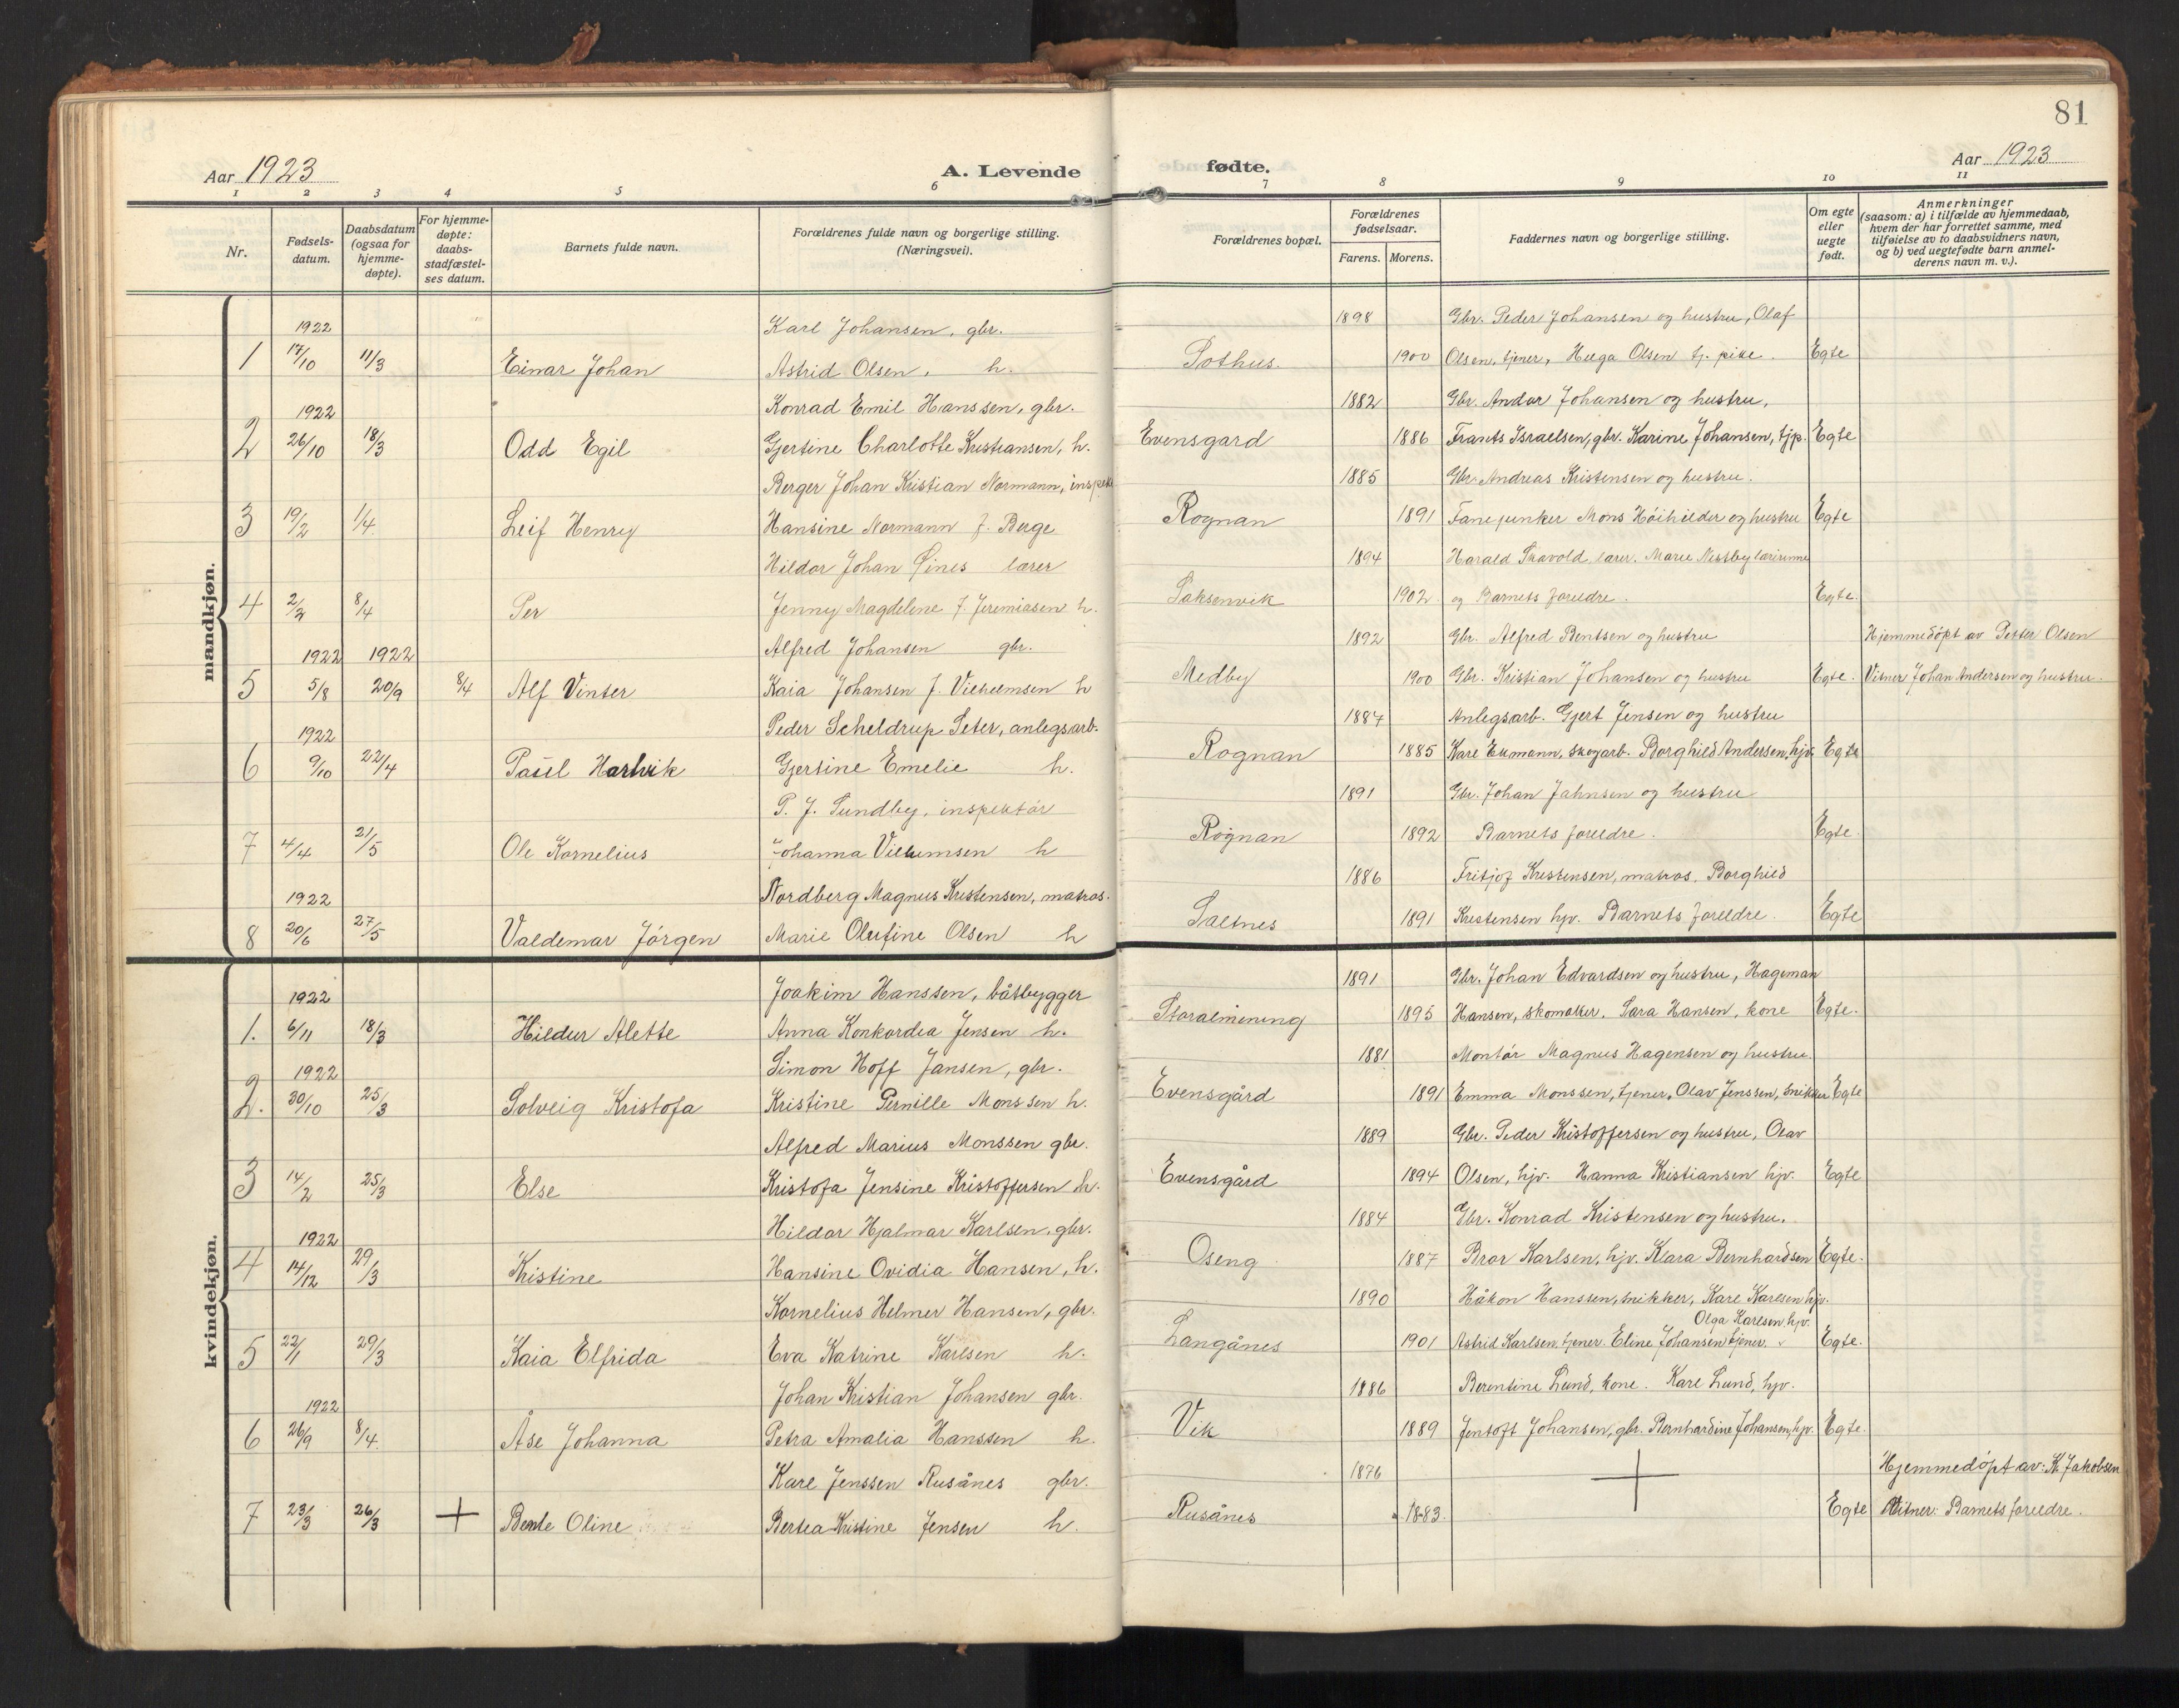 81
Aar 1923
A. Levende
fødte.
Aar 1923
1 2 3 4 5 6 7 8 9 10 11
Nr.
Fødsels-
datum.
Daabsdatum
(ogsaa for
hjemme-
døpte).
For hjemme-
døpte:
daabs-
stadfæstel-
ses datum.
Barnets fulde navn.
Forældrenes fulde navn og borgerlige stilling.
(Næringsvei).
Forældrenes bopæl.
Forældrenes
fødselsaar.
Farens. Morens.
Faddernes navn og borgerlige stilling.
Om egte
eller
uegte
født.
Anmerkninger
(saasom: a) i tilfælde av hjemmedaab,
hvem der har forrettet samme, med
tilføielse av to daabsvidners navn,
og b) ved uegtefødte barn anmel-
derens navn m. v.).
mandkjøn.
1922 Karl Johansen, gbr. 1898 Gbr. Peder Johansen og hustru, Olaf
1 17/10 11/3 Einar Johan Astrid Olsen, h. Sothus. 1900 Olsen, tjener, Helga Olsen tj. pike. Egte
1922 Konrad Emil Hanssen, gbr. 1882 Gbr. Andor Johansen og hustru,
2 26/10 18/3 Odd Egil Gjertine Charlotte Kristiansen, h. Evensgard 1886 Frants Israelsen, gbr. Karine Johansen, tjp. Egte
Berger Johan Kristian Normann, inspek 1885 Gbr. Andreas Kristensen og hustru.
3 19/2 1/4 Leif Henry Hansine Normann f. Berge Rognan 1891 Fanejunker Mons Höihilder og hustru Egte
Hildor Johan Sines lærer 1894 Harald Skavold lærer. Marie Nestby lærerinne
4 2/2 8/4 Per Jenny Magdelene f. Jeremiasen h. Saksenvik 1902 og Barnets foreldre. Egte.
1922 1922 Alfred Johansen gbr. 1892 Gbr. Alfred Bentsen og hustru Hjemmedöpt av Petter Olsen
5 5/8 20/9 8/4 Alf Vinter Kaia Johansen f. Vilhelmsen h Medby 1900 Gbr. Kristian Johansen og hustru Egte. Vitner Johan Andersen og hustru.
1922 Peder Scheldrup Seter, anlegsarb. 1884 Anlegsarb. Gjert Jensen og hustru
6 9/10 22/4 Paul Hartvik Gjertine Emelie h. Rognan 1885 Karl Ekmann, skogarb. Borghild Andersen, hjv. Egte
P. J. Sundby, inspektör 1891 Gbr. Johan Jahnsen og hustru
7 4/4 21/5 Ole Kornelius Johanna Vilhelmsen h Rognan 1892 Barnets foreldre. Egte.
1922 Nordberg Magnus Kristensen, matros. 1886 Fritjof Kristensen, matros. Borghild
8 20/6 27/5 Valdemar Jörgen Marie Olufine Olsen h Saltnes 1891 Kristensen hjv. Barnets foreldre. Egte
kvindekjøn.
1922 Joakim Hanssen, båtbygger 1891 Gbr. Johan Edvardsen og hustru, Hageman
1. 6/11 18/3 Hildur Alette Anna Konkordia Jensen h. Storalmening 1895 Hansen, skomaker. Sara Hansen, kone Egte.
1922 Simon Hoff Jansen, gbr. 1881 Montör Magnus Hagensen og hustru.
2. 30/10 25/3 Solveig Kristofa Kristine Pernille Monssen h. Evensgård 1891 Emma Monssen, tjener, Olav Jenssen, snikker Egte
Alfred Marius Monssen gbr. 1889 Gbr. Peder Kristoffersen og hustru, Olav
3 14/2 25/3 Else Kristofa Jensine Kristoffersen h. Evensgård 1894 Olsen, hjv. Hanna Kristiansen hjv. Egte
1922 Hildor Hjalmar Karlsen, gbr. 1884 Gbr. Konrad Kristensen og hustru.
4 14/12 29/3 Kristine Hansine Ovidia Hansen, h. Oseng 1887 Bror Karlsen, hjv. Klara Bernhardsen Egte.
Kornelius Helmer Hansen, gbr. 1890 Håkon Hanssen, snikker, Karl Karlsen hjv.
Olga Karlsen, hjv.
5 22/1 29/3 Kaia Elfrida Eva Katrine Karlsen h. Langånes 1901 Astrid Karlsen, tjener. Eline Johansen tjener. Egte.
1922 Johan Kristian Johansen gbr. 1886 Berentine Lund, kone. Karl Lund, hjv.
6 26/9 8/4 Åse Johanna Petra Amalia Hanssen h. Vik 1889 Jentoft Johansen, gbr. Bernhardine Johansen, hjv. Egte.
Karl Jenssen Rusånes gbr. 1876 Hjemmedöpt av: K. Jakobsen
7 23/3 26/3 + Bente Oline Bertea Kristine Jensen h. Rusånes 1883. + Egte Vitner: Barnets foreldre.